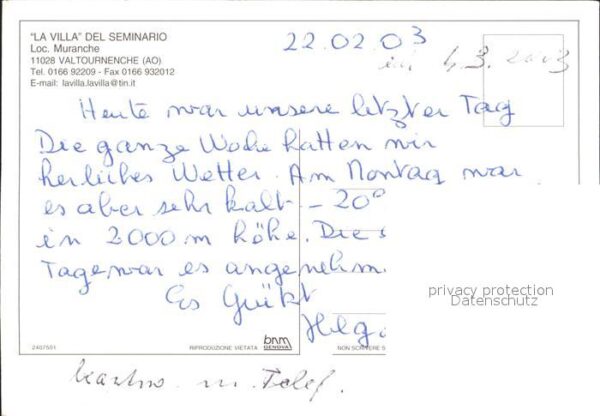 "LA VILLA" DEL SEMINARIO
Loc. Muranche
11028 VALTOURNENCHE (AO)
Tel. 0166 92209 - Fax 0166 932012
E-mail: lavilla.lavilla@tin.it
22.02.03
4.3.2003
Heute war unsere letzter Tag
Die ganze Woche hatten wir
herliches Wetter. Am Montag war
es aber sehr kalt - 20°
in 2000 m höhe. Die
Tage war es angenehm.
Es Grüßt
Helg
privacy protection
Datenschutz
2407551
RIPRODUZIONE VIETATA
bnm
GENOVA
NON SCRIVERE S
m. Telef.